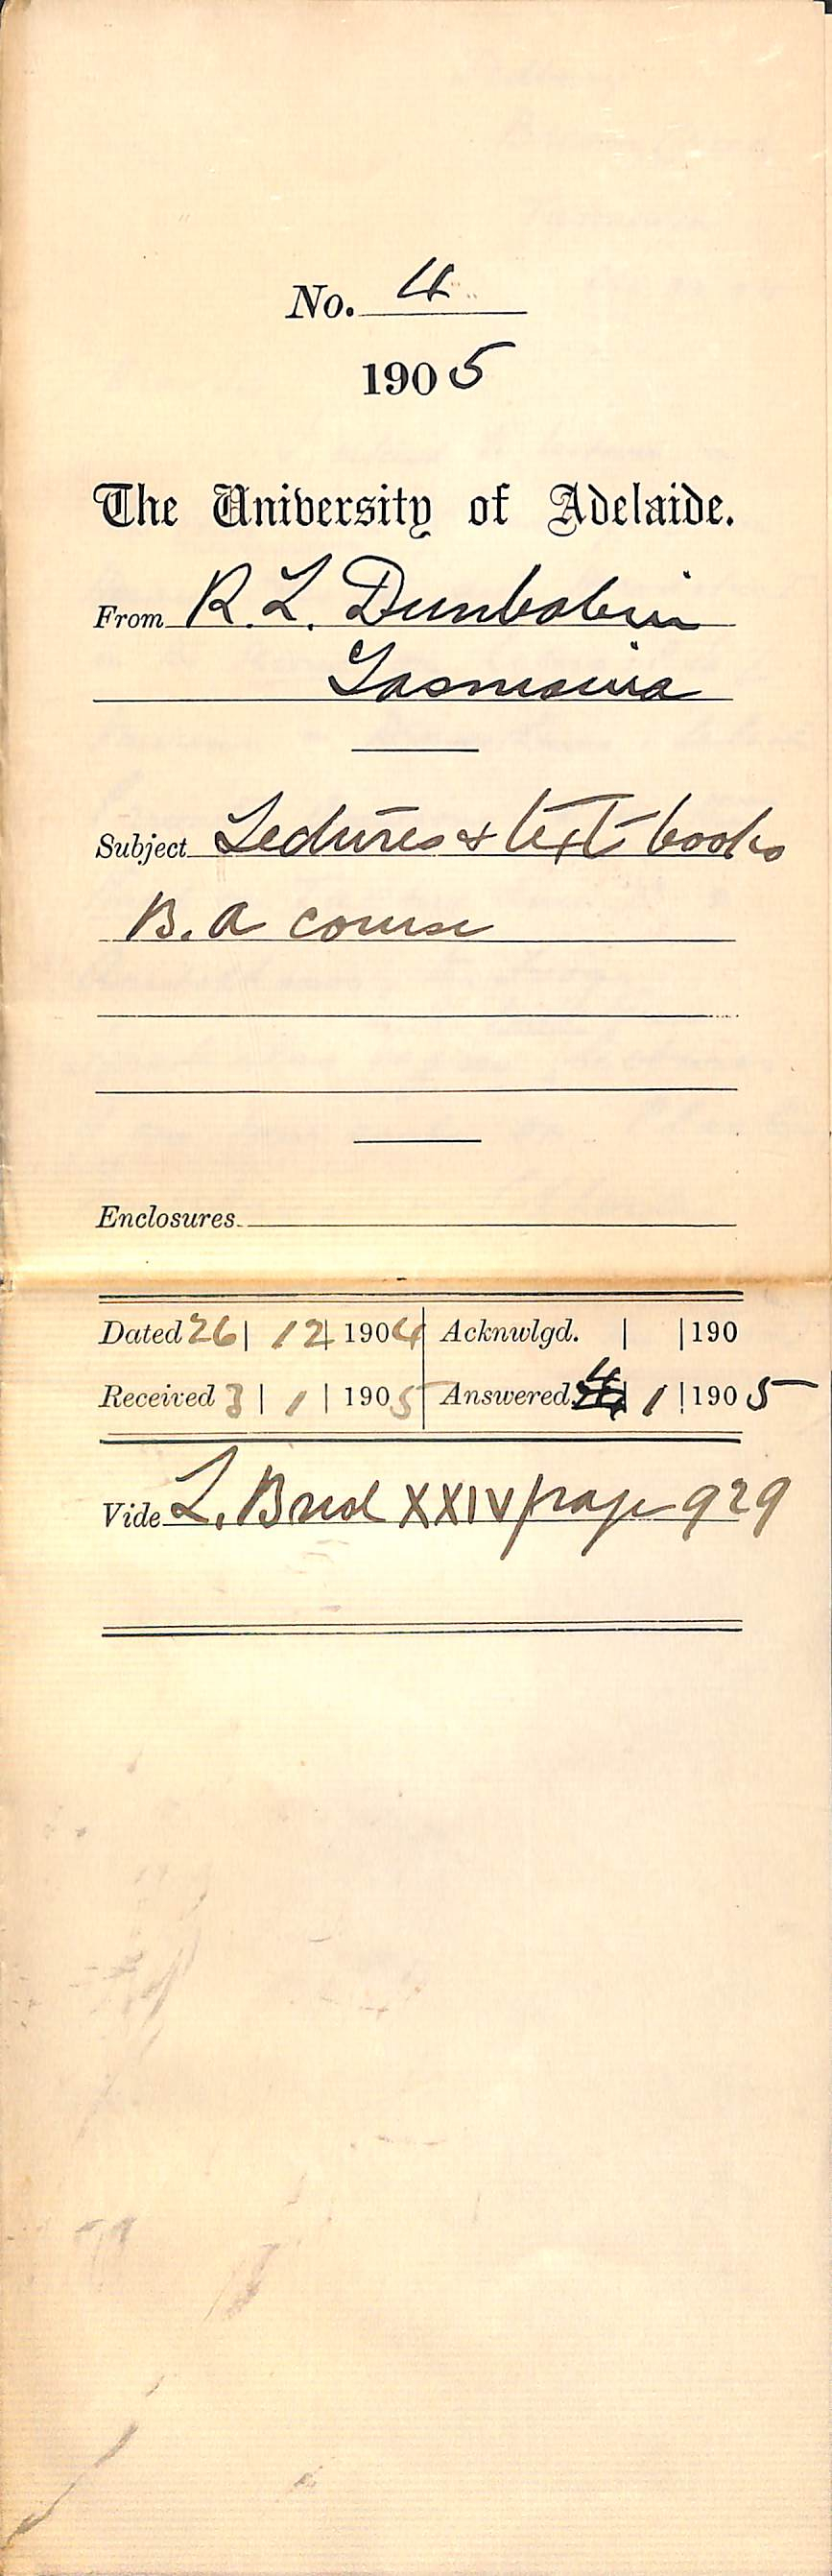 No. 4
1905
The University of Adelaide.
From R. L. Dunbabin
Tasmania
Subject Lectures & text-books
B.a course
Enclosures
Dated 26 | 12 | 1904 Acknwlgd. | | 190
Received 3 | 1 | 1905 Answered 4 | 1 | 1905
Vide L. XXIV page 929